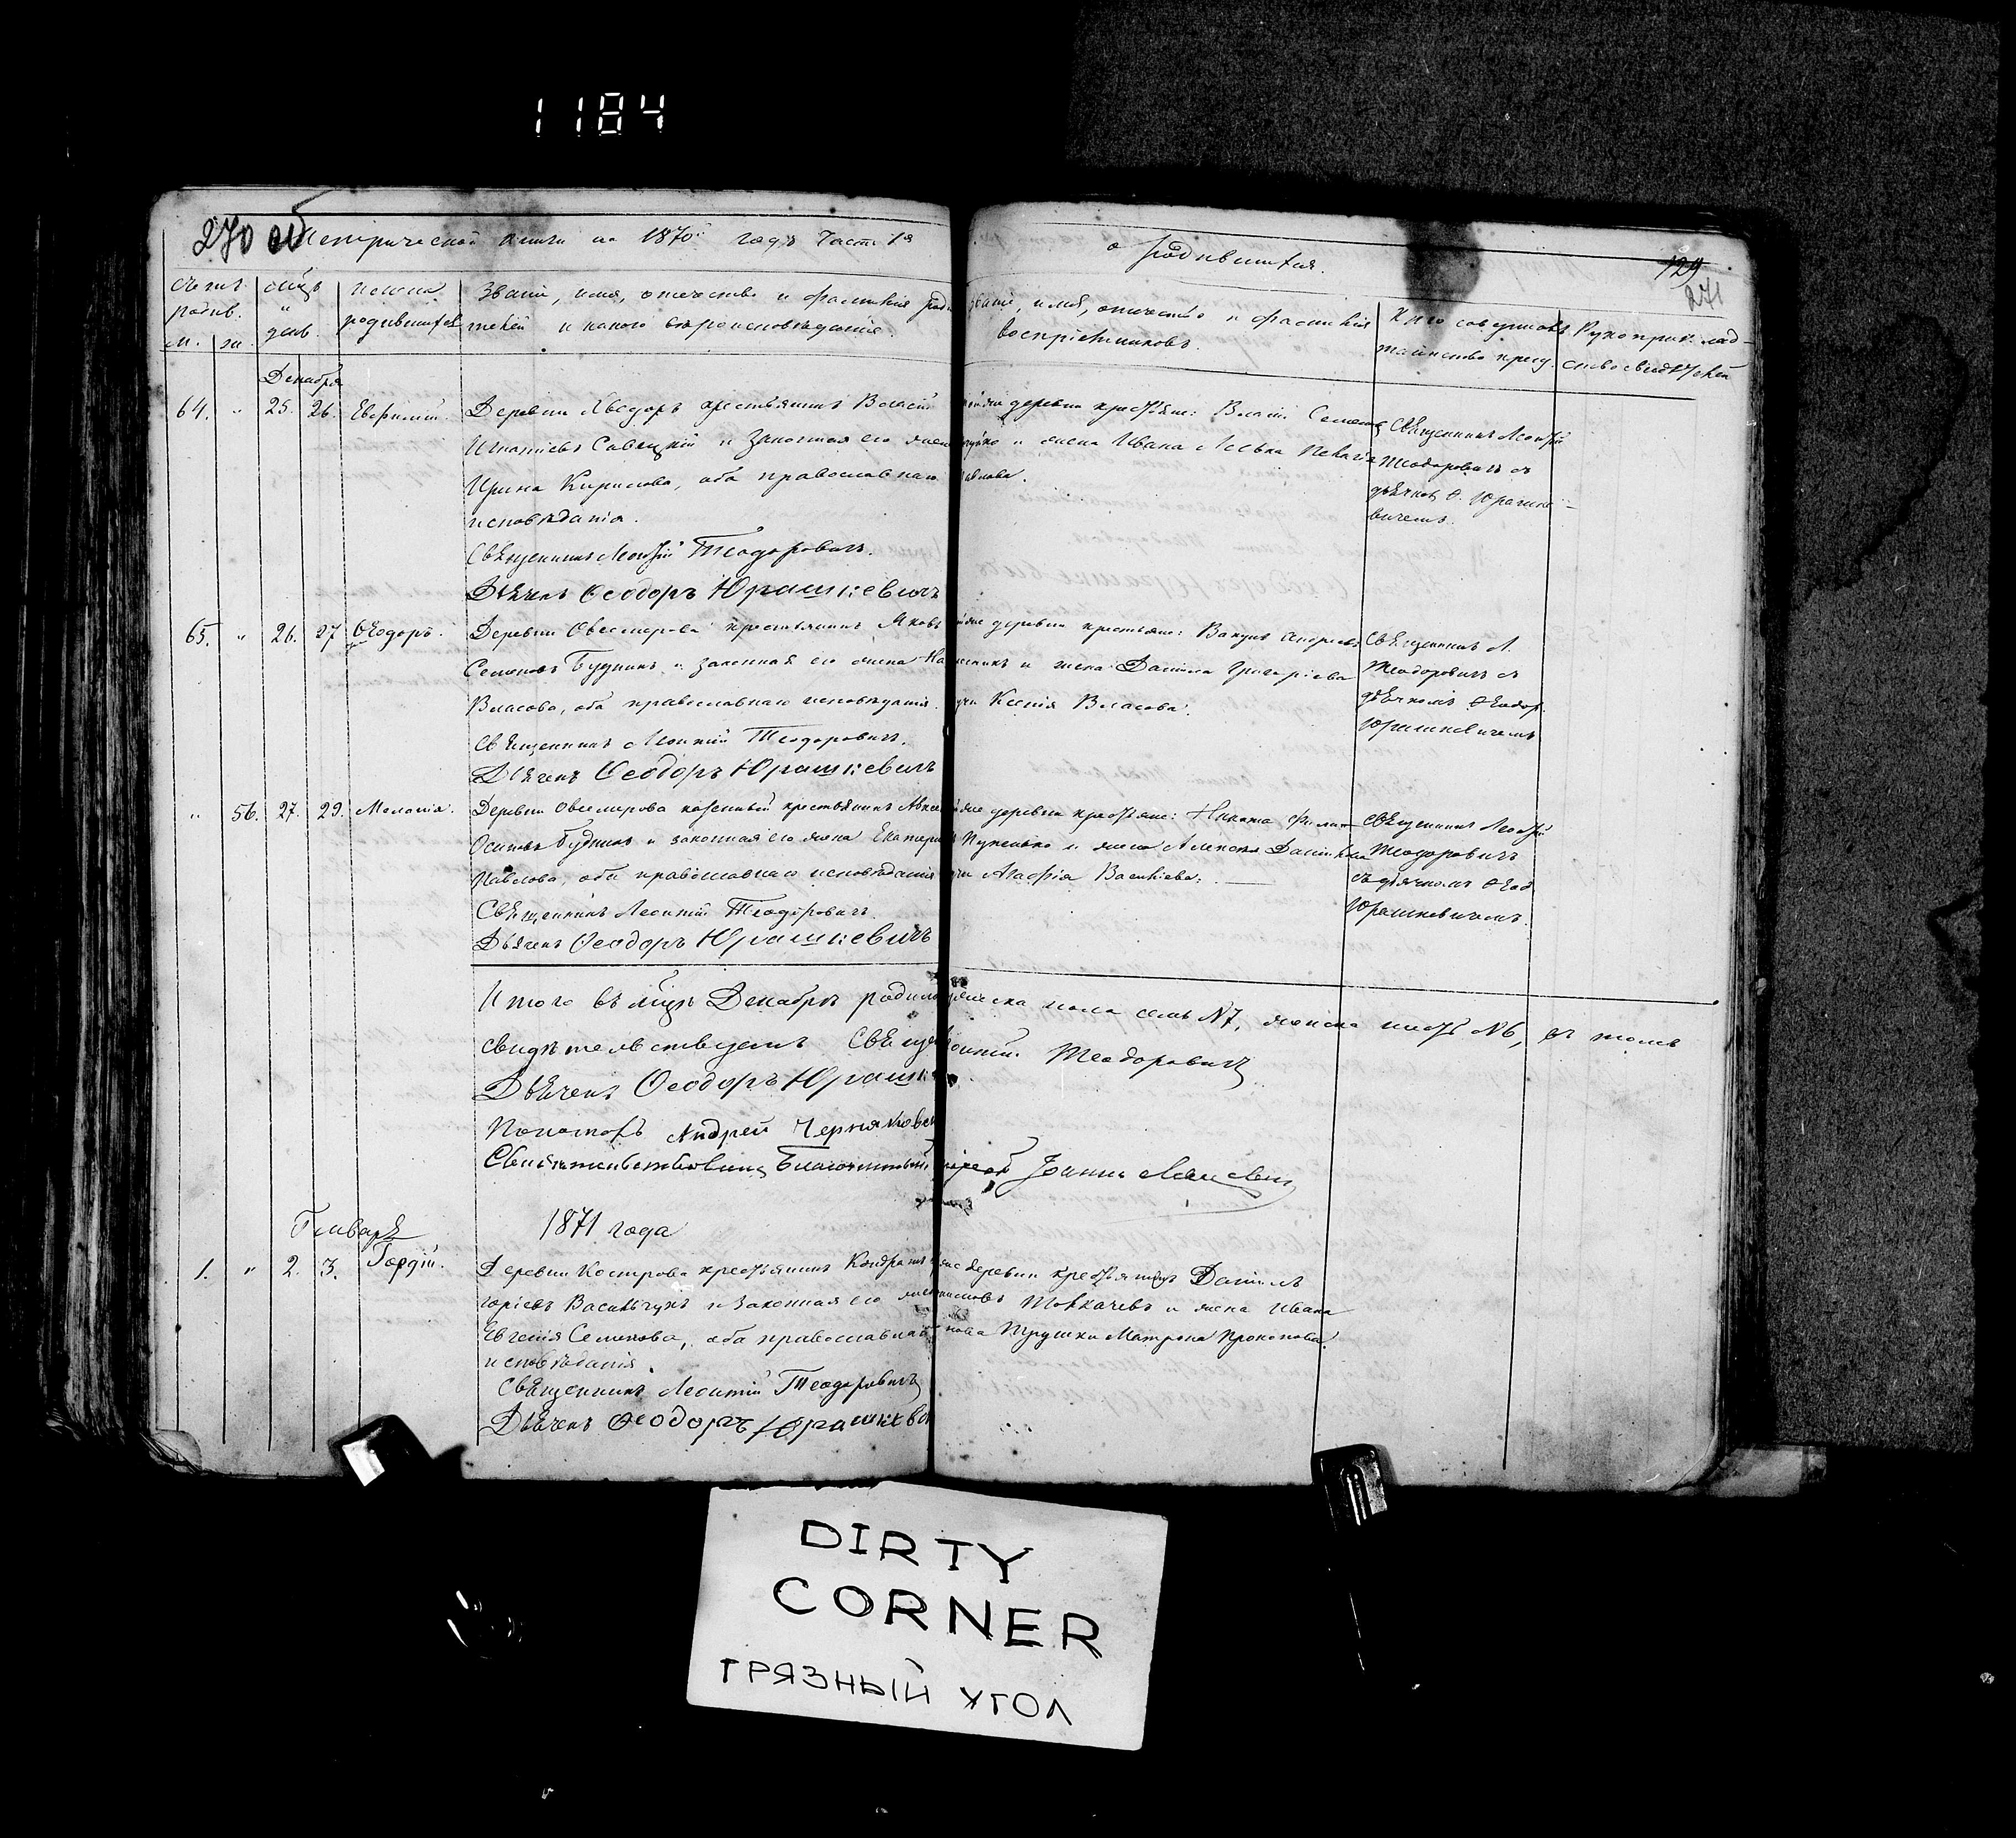 1184
270
Метрической книги на 1870й годъ Часть 1я
о родившихся.
129
271
счетъ родив.
м. ж.
мѣц. и день
имена родившихся
Званіе, имя, отчество и фамилія роди
телей и какого вѣроисповѣданія.
Званіе, имя, отчество и фамилія
воспріемниковъ.
Кто совершалъ
таинство крещ.
Рукоприклад-
ство свидѣтелей
Декабря
64. " 25. 26. Евфимій.
Деревни крестьянинъ Власій
Игнатіевъ Савицкій и законная его жена
Ирина Кирилова, оба православнаго
исповѣданія.
Священникъ Леонтій Теодоровичъ.
Дьячекъ Ѳеодоръ Юрашкевичъ
деревни крестьяне: Власій Семеновъ
и жена Ивана Пелагія
Священникъ Леонтій
Теодоровичъ съ
дьячком Ѳ. Юрашке-
вичемъ.
65. " 26. 27 Ѳеодоръ.
Деревни Овсемирова крестьянинъ Яковъ
Семеновъ Будникъ и законная его жена
Власова, оба православнаго исповѣданія.
Священникъ Леонтій Теодоровичъ.
Дьячекъ Ѳеодоръ Юрашкевичъ
деревни крестьяне: Андреевъ
и жена Данила Григоріева
Ксенія Власова.
Священникъ Л.
Теодоровичъ съ
дьячкомъ Ѳеодор.
Юрашкевичемъ
" 56. 27. 29. Меланія.
Деревни Овсемирова крестьянинъ
Осиповъ Будникъ и законная его жена Екатерина
Павлова, оба православнаго исповѣданія
Священникъ Леонтій Теодоровичъ.
Дьячекъ Ѳеодоръ Юрашкевичъ
деревни крестьяне: Никита
и жена Алексѣя
Агафія Васильева.
Священникъ Леонтій
Теодоровичъ
съ дьячкомъ Ѳеод.
Юрашкевичемъ.
Итого въ мѣцѣ Декабрѣ родилось мужеска пола семь №7, женска шесть №6, въ томъ
свидѣтельствуемъ Священникъ Леонтій Теодоровичъ
Дьячекъ Ѳеодоръ Юрашке
Пономарь Андрей
Свидѣтельствовалъ Благочинный Іерей Іоаннъ
Генваря 1871 года
1. " 2. 3. Гордій.
Деревни Кострова крестьянинъ Кондратъ
Юріевъ Васильчукъ и законная его жена
Евгенія Семенова, оба православнаго
исповѣданія.
Священникъ Леонтій Теодоровичъ
Дьячекъ Ѳеодоръ Юрашкевич
деревни крестьянинъ Даніилъ
Толкачевъ и жена Ивана
Трушки Матрона Прокопова.
DIRTY
CORNER
ГРЯЗНЫЙ УГОЛ